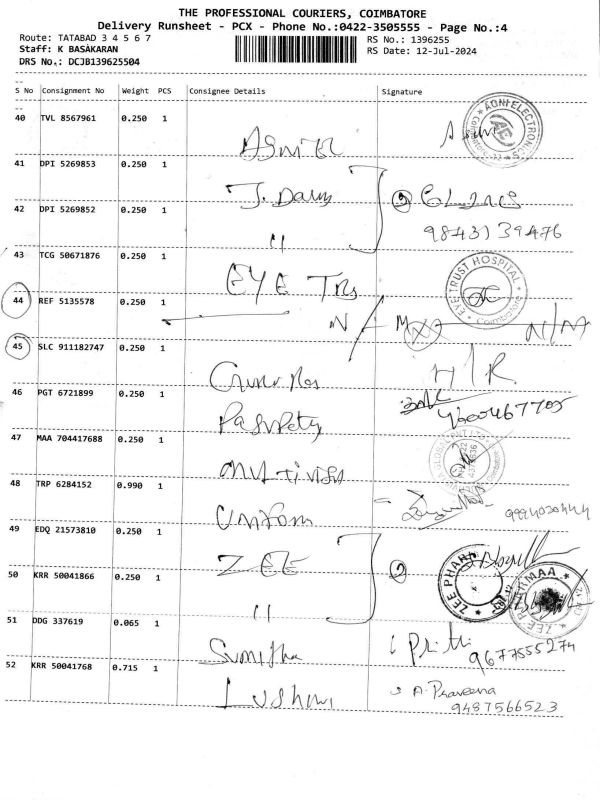 THE PROFESSIONAL COURIERS, COIMBATORE
Delivery Runsheet - PCX - Phone No.:0422-3505555 - Page No.:4
Route: TATABAD 3 4 5 6 7
RS No.: 1396255
Staff: K BASAKARAN
RS Date: 12-Jul-2024
DRS No.: DCJB139625504
S No Consignment No Weight PCS Consignee Details Signature
40 TVL 8567961 0.250 1
AGNI ELECTRONICS
41 DPI 5269853 0.250 1
42 DPI 5269852 0.250 1 "
9843139476
43 TCG 50671876 0.250 1 EYE
EYE TRUST HOSPITAL
Coimbatore
44 REF 5135578 0.250 1
N/M N/M
45 SLC 911182747 0.250 1
H/R.
46 PGT 6721899 0.250 1
9600467705
47 MAA 704417688 0.250 1
48 TRP 6284152 0.990 1 Uniform
49 EDQ 21573810 0.250 1 ZEE
ZEE PHARMAA
50 KRR 50041866 0.250 1 "
ZEE PHARMAA
51 DDG 337619 0.065 1 Sumitha
9677555274
52 KRR 50041768 0.715 1
A. Praveena
9487566523